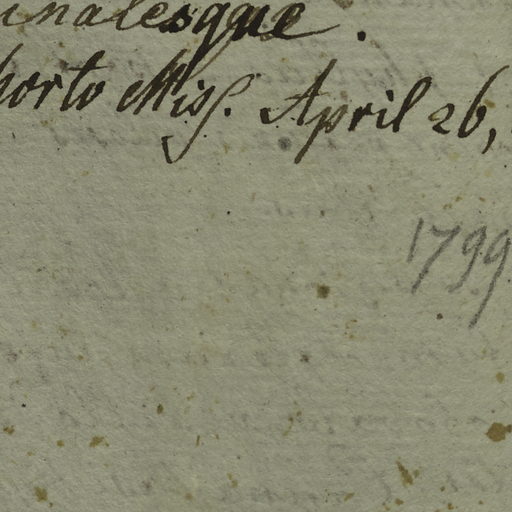 inalesque.
horto Miss. April 26,
1799